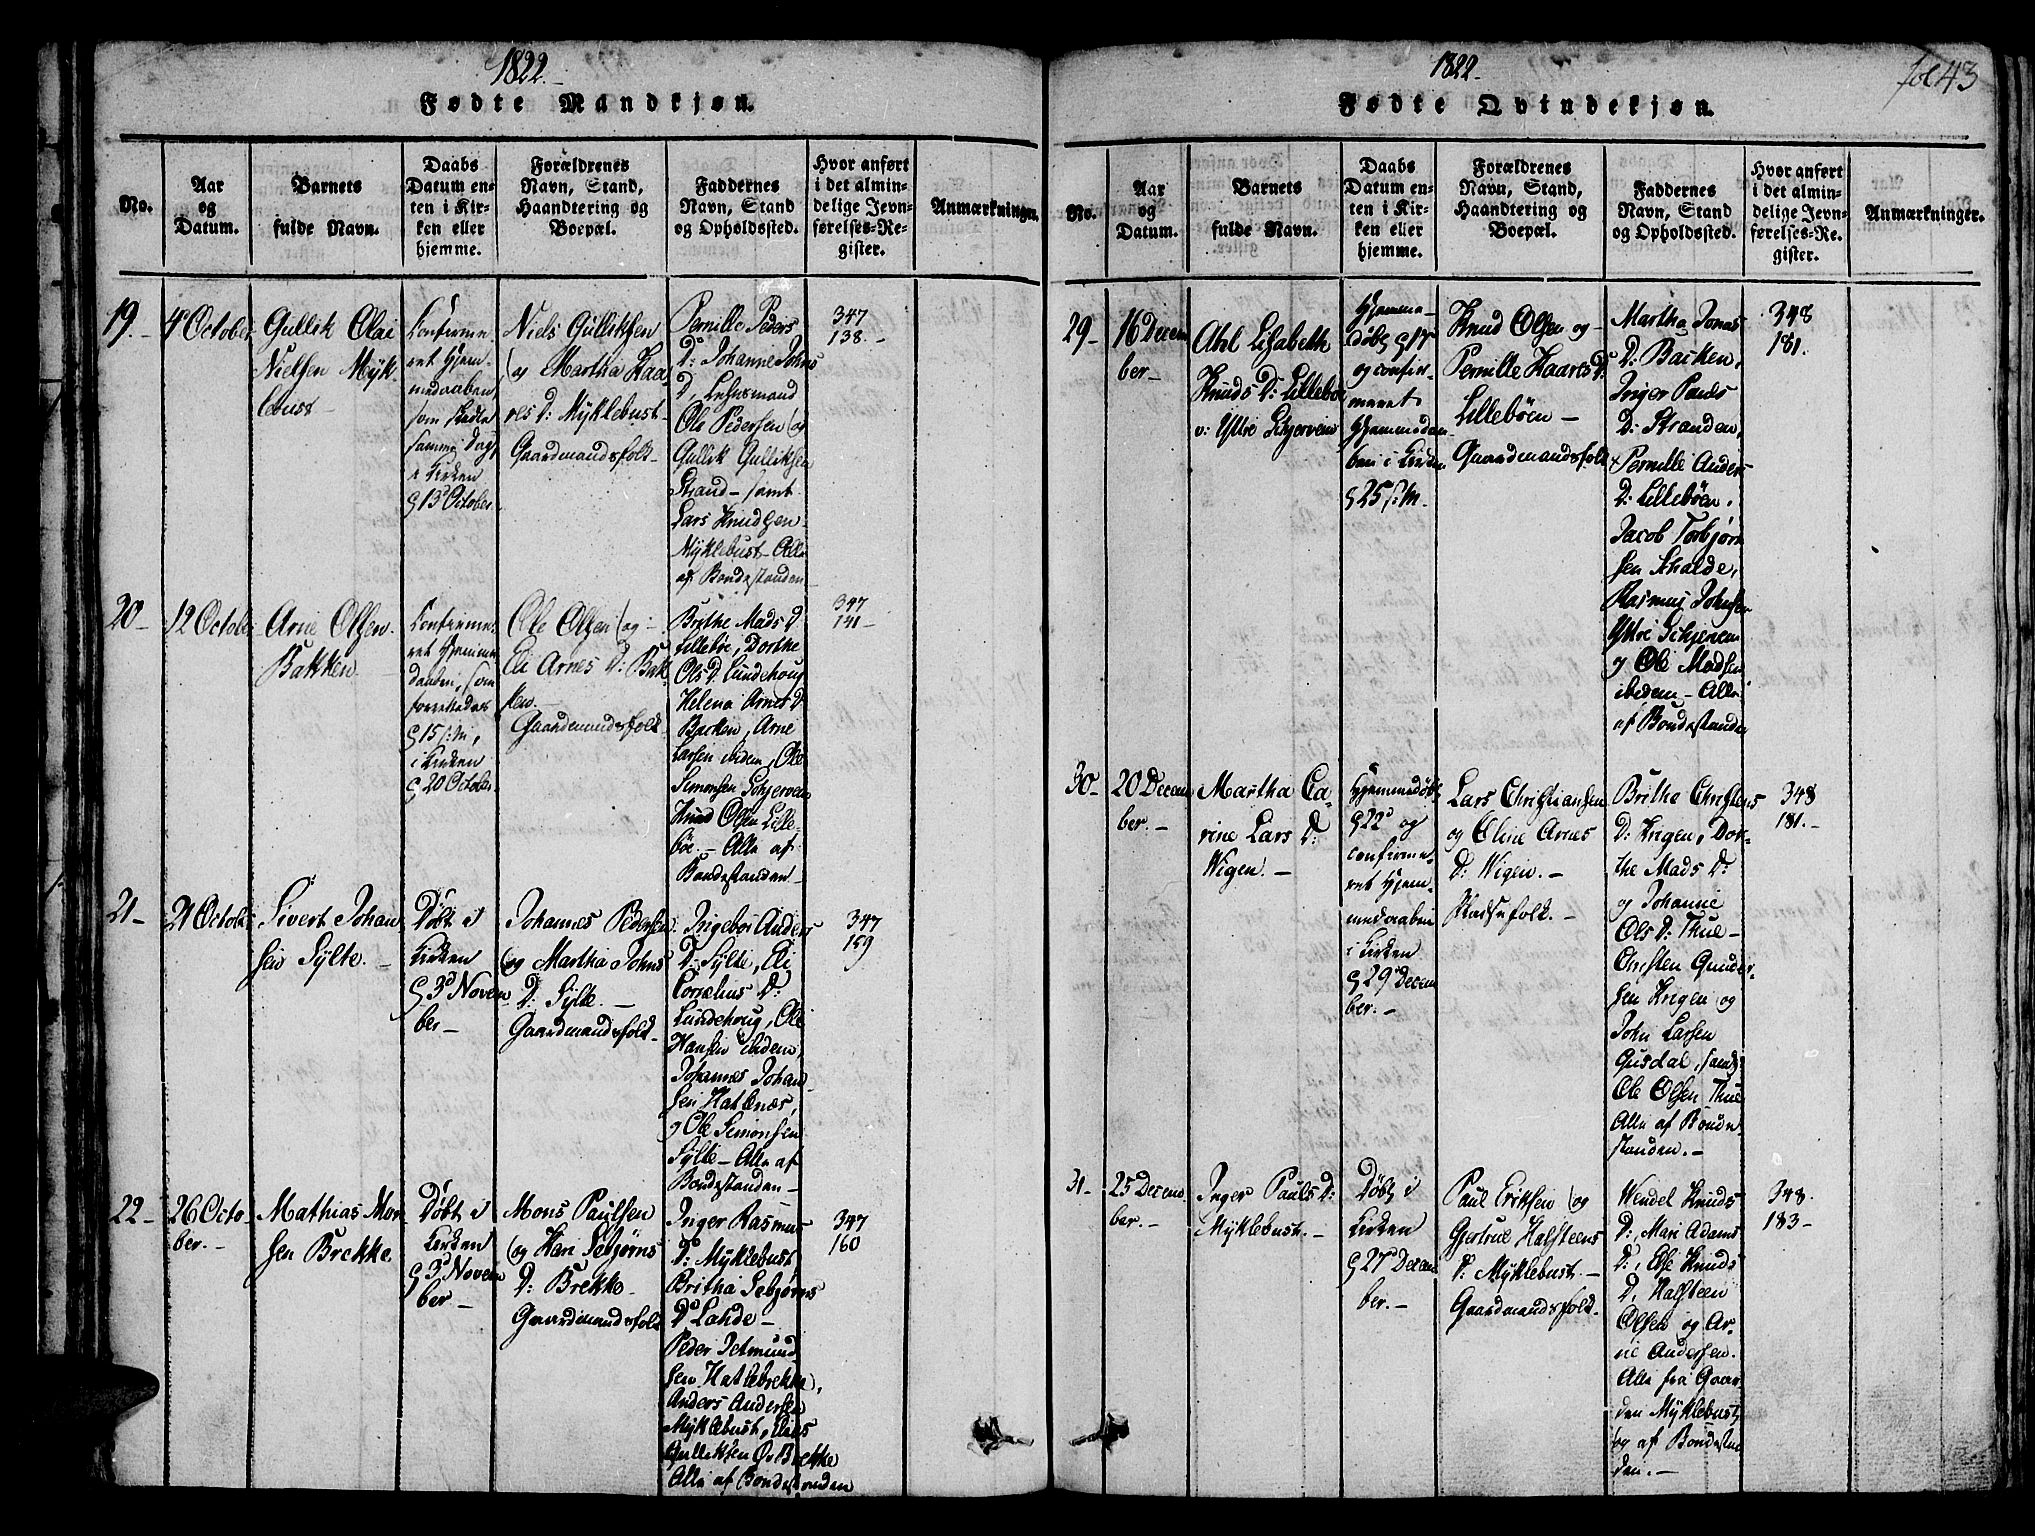 1822.
Fødte Mandkjøn.
No.
Aar
og
Datum.
Barnets
fulde Navn.
Daabs
Datum en-
ten i Kir-
ken eller
hjemme.
Forældrenes
Navn, Stand,
Haandtering og
Boepæl.
Faddernes
Navn, Stand
og Opholdssted.
Hvor anført
i det almin-
delige Jevn-
førelses-Re-
gister.
Anmærkninger.
19.
4 October
Gullik Olai
Nielsen Mÿk-
lebust
Confirme
ret Hjem-
medaaben,
som skedte
samme Dag,
i Kirken
13 October
Niels Gulliksen
og Martha Haa-
res D: Mÿklebust
Gaardmandsfolk
Pernille Peders
D: Johanne Johns
D, Lehnsmand
Ole Pedersen og
Gullik Gulliksen
Strand - samt
Lars Knudsen
Mÿklebust - Alle
af Bondestanden
347
138.
20
12 October
Arne Olsen
Bakken
Confirme
ret Hjemme
Daaben, som
forrettedes
15
i Kirken
20 October
Ole Olsen og
Eli Arnes D: Bak-
ken.
Gaardmandsfolk
Brithe Mads D
Lillebøe, Dorthe
Ols D. Lundehoug
Helena Arnes D
Backen, Arne
Larsen ibidem, Ole
Simonsen Schjerven
Knud Olsen Lille-
bøe. - Alle af
Bondestanden
347
141
21
21 October
Sivert Johan
sen Sÿlte.
Døbt i
Kirken
3 Novem
ber
Johannes Pedersen
og Martha Johns
D: Sÿlte.
Gaardmandsfolk
Ingebor Anders
D: Sÿlte, Eli
Cornelius D:
Lundehoug, Ole
Hansen ibidem,
Johannes Johan
sen Hatlenæs,
og Ole Simonsen
Sÿlte - Alle af
Bondestanden
347
159
22
26 Octo
ber.
Mathias Mon
sen Brekke
Døbt i
Kirken
3 Novem
ber
Mons Paulsen
og Kari Sebjørns
D: Brekke
Gaardmandsfolk
Inger Rasmus
D: Mÿklebust,
Britha Sebjørns
D Lahde
Peder Jetmund
sen Hatlebrekke,
Anders Andersen
Mÿklebust,
Gulliksen Brekke
Alle af Bondestanden
347
160
1822.
Fødte Qvindekjøn.
fol 43
No.
Aar
og
Datum.
Barnets
fulde Navn.
Daabs
Datum en-
ten i Kir-
ken eller
hjemme.
Forældrenes
Navn, Stand,
Haandtering og
Boepæl.
Faddernes
Navn, Stand
og Opholdssted.
Hvor anført
i det almin-
delige Jevn-
førelses-Re-
gister.
Anmærkninger.
29.
16 Decem
ber
Lisabeth
Knuds D: Lillebøe
Ÿttre Schjerven
Hjemme-
døbt 17
og confir-
meret
Hjemmedaa-
ben i Kirken
25
Knud Olsen og
Pernille Haares D:
Lillebøen
Gaardmandsfolk
Martha Jonas
D: Backen,
Inger Pauls
D: Stranden,
Pernille Anders
D: Lillebøen.
Jacob Torbjørn
sen Schalde,
Rasmus Johnsen
Ÿttre Schjerven
og Ole Madsen
ibidem - Alle
af Bondestanden
348
181.
30
20 Decem
ber.
Martha Ca-
rine Lars D:
Wigen.
Hjemmedøbt
22 og
confirme-
ret Hjem-
medaaben
i Kirken
29 Decem
ber.
Lars Christiansen
og Oline Arnes
D: Wigen.
Pladsefolk.
Britha Christens
D: Krigen, Dor-
the Mads D:
og Johanne
Ols D: Thue
Christen Gunder-
sen Krigen og
John Larsen
Gusdal, samt
Ole Olsen Thue
Alle af Bonde-
standen.
348
181.
31
25 Decem
ber.
Inger Pauls D:
Mÿklebust.
Døbt i
Kirken
27 Decem
ber.
Paul Eriksen og
Gjertrue Halsteens
D: Mÿklebust.
Gaardmandsfolk
Wendel Knuds
D:, Mari Adams
D:, Else Knuds
D, Halsteen
Olsen og Ar-
ne Andersen.
Alle fra Gaar-
den Mÿklebust,
og af Bondestan
den.
348.
183